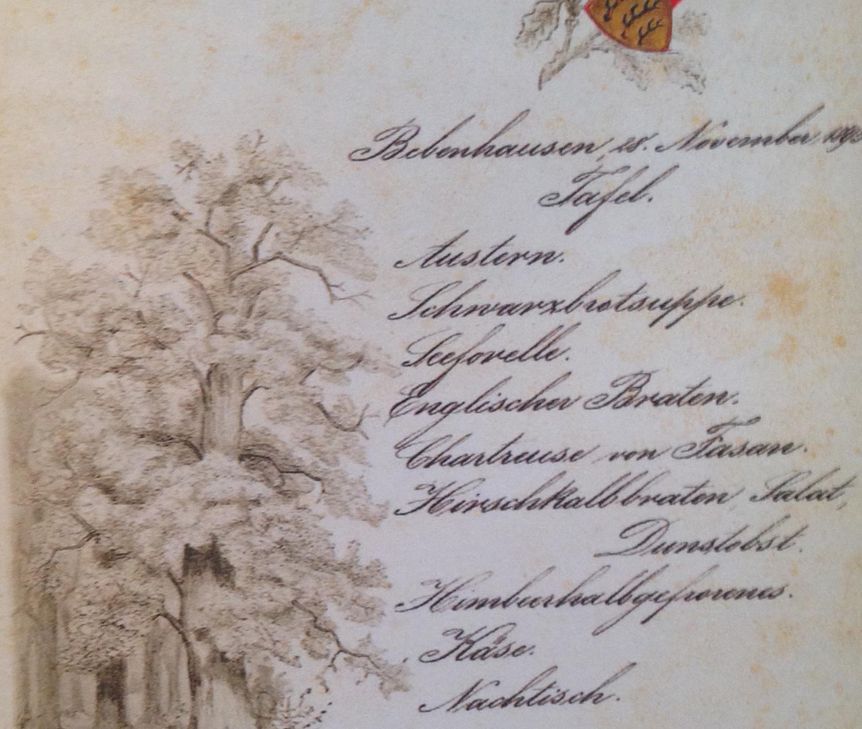 Bebenhausen, 28. November
Tafel.
Austern.
Schwarzbrotsuppe.
Seeforelle.
Englischer Braten.
Chartreuse von Fasan.
Hirschkalbbraten, Salat,
Dunstobst.
Himbeerhalbgefrorenes.
Käse.
Nachtisch.